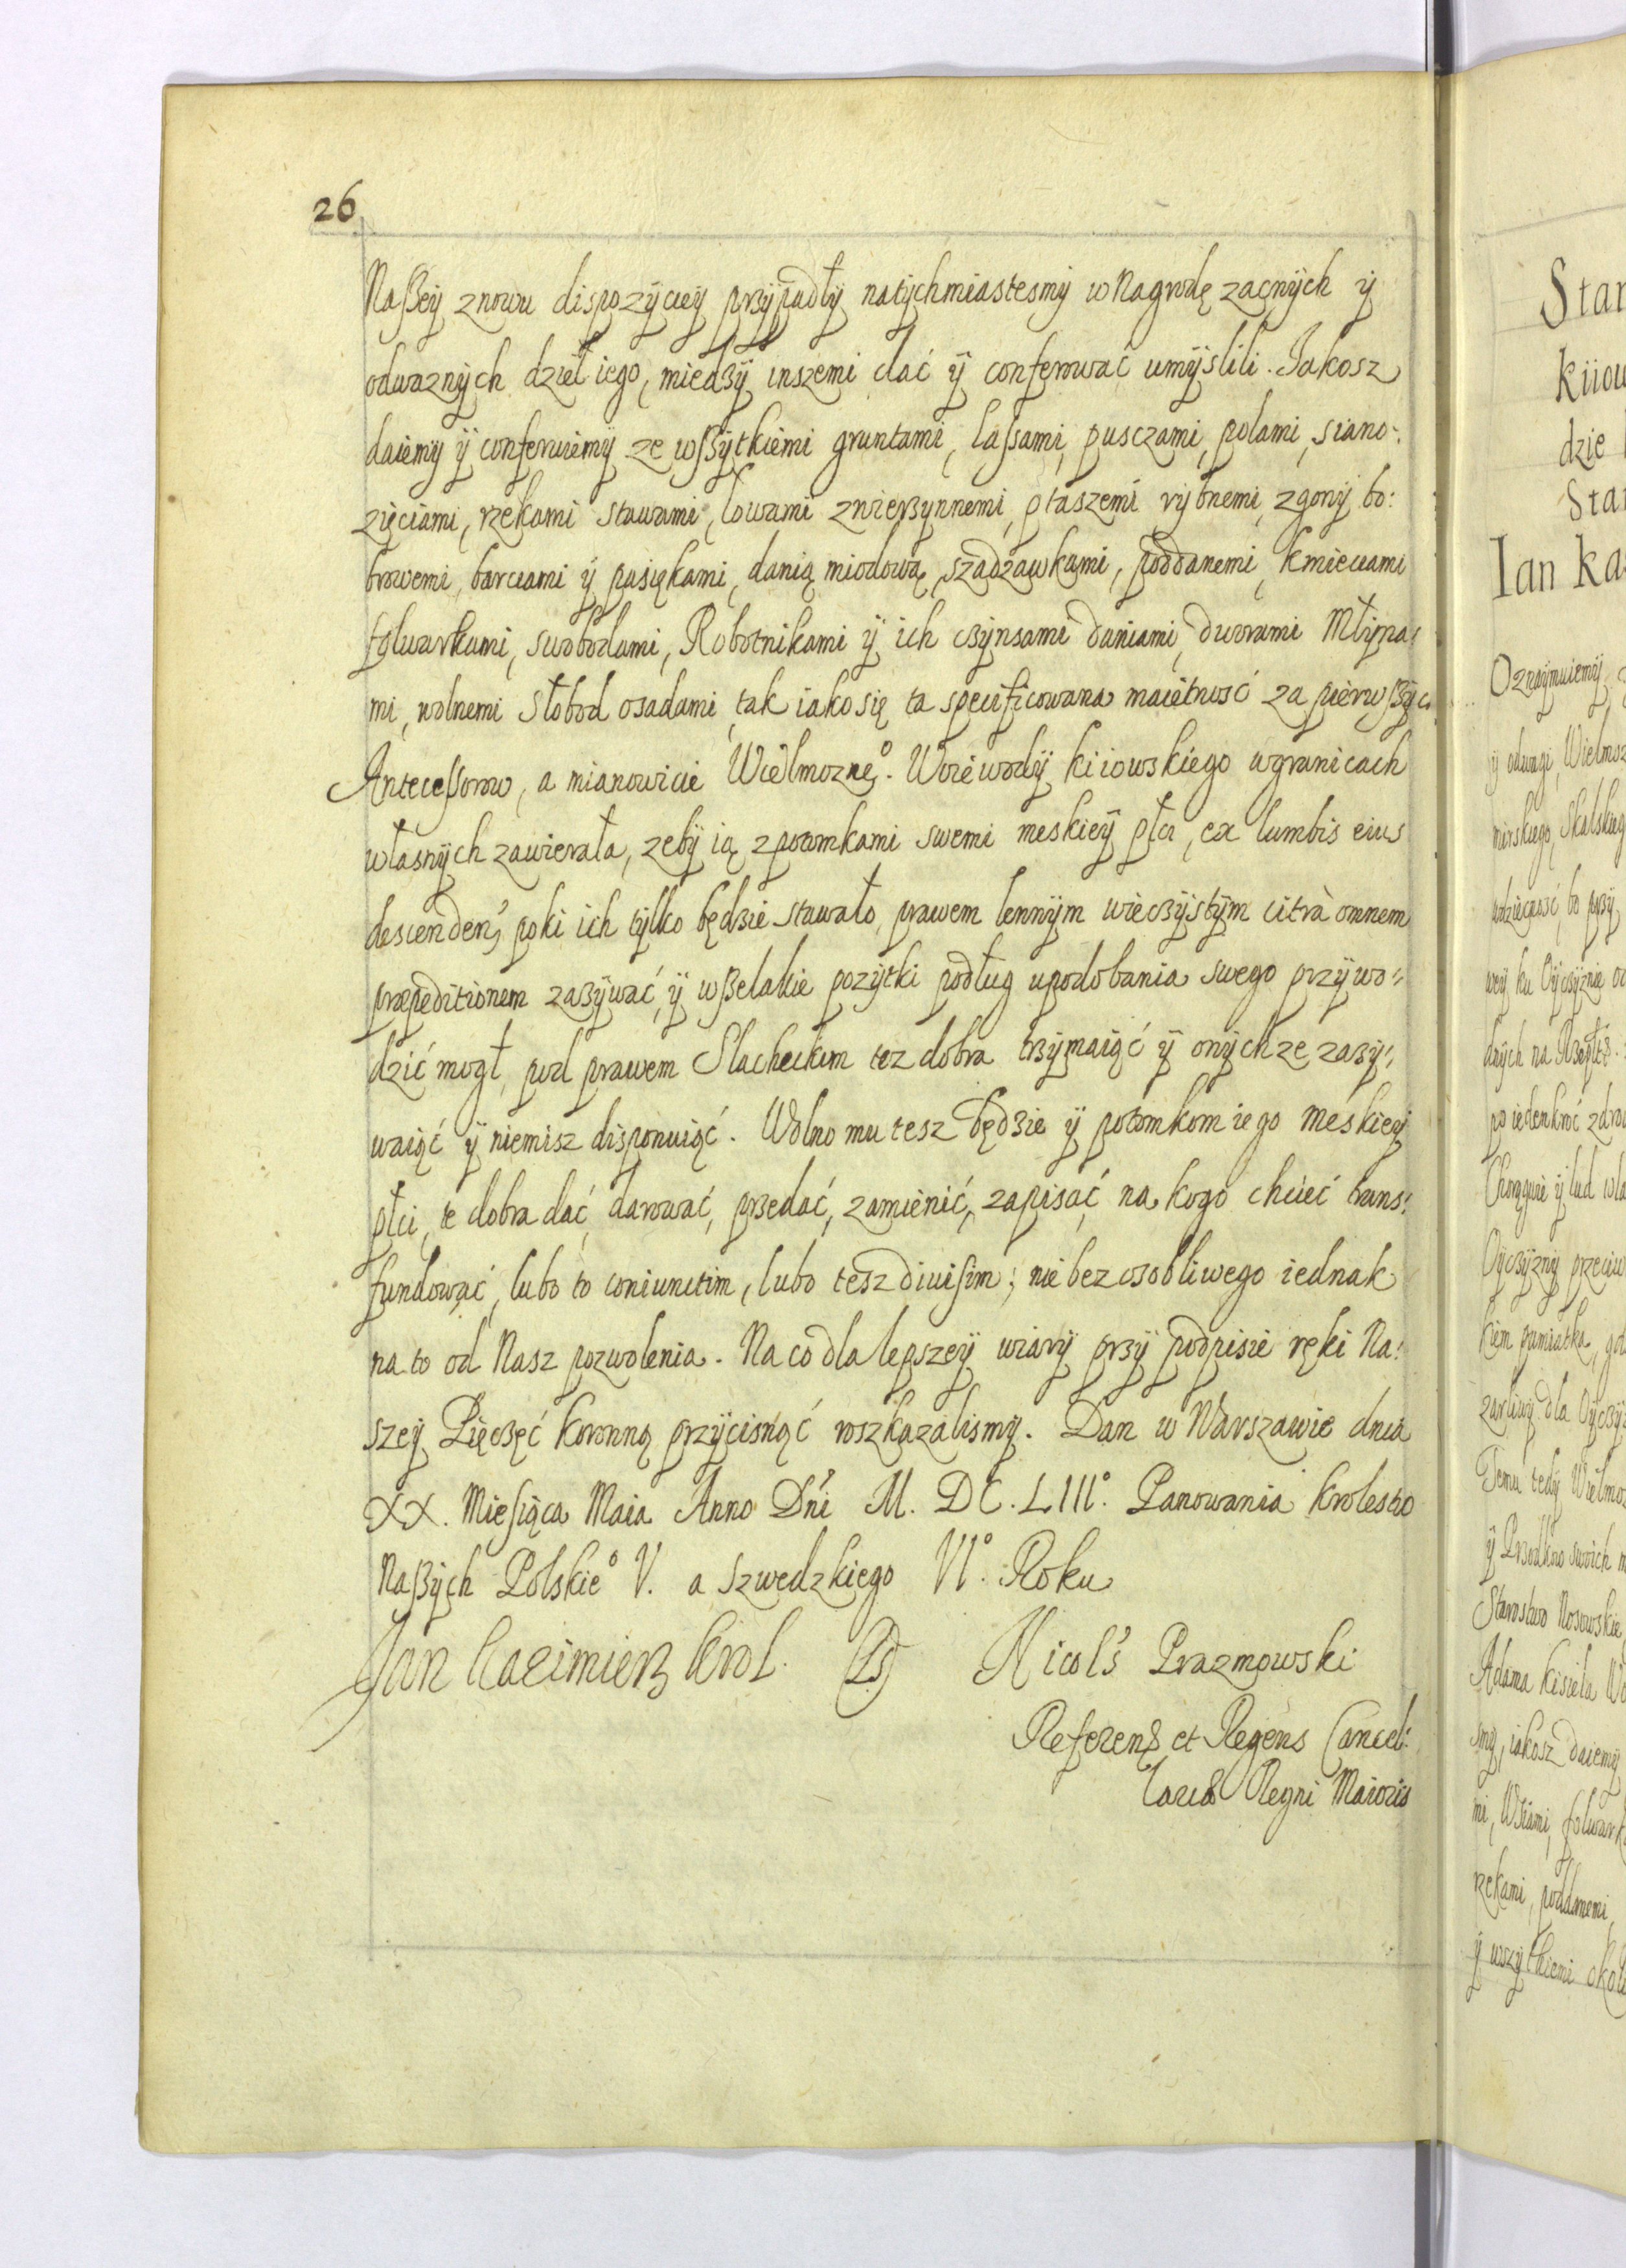 26
Naßeÿ znowu dispozÿcieÿ przÿpadłÿ natÿchmiastesmÿ w Nagrodę zacnÿch ÿ
odwaznÿch dzieł iego, miedzÿ inszemi dać ÿ conferować umÿslili. Jakosz
daiemÿ ÿ conferuiemÿ ze wßÿtkiemi gruntami, lassami, pusczami, polami, siano:
zięciami, rzekami stawami, lowami zwierzynnemi, ptaszemi rÿbnemi, zgonÿ bo:
browemi, barciami ÿ pasiękami, danią miodową, szadzawkami, poddanemi, kmieciami
folwarkami, swobodami, Robotnikami ÿ ich czÿnsami daniami, dworami Młÿna:
mi, wolnemi Słobod osadami, tak iako się ta specificowana maiętność za pierwßÿch
Antecessorow, a mianowicie Wielmozneº. Woiewodÿ kiiowskiego w granicach
własnÿch zawierała, zebÿ ią z potomkami swemi meskieÿ płci, ex lumbis eius
descenden, poki ich tÿlko będzie stawało, prawem lennÿm wieczÿstÿm citrà omnem
præpeditionem zazÿwać, ÿ wßelakie pozÿtki podług upodobania swego przÿwo:
dzić mogł, pod prawem Slacheckim tez dobra trzÿmaiąć ÿ onÿchze zazÿ:
waiąć ÿ niemisz disponuiąć. Wolno mu tesz będzie ÿ potomkom iego meskieÿ
płci, te dobra dać, darować, przedać, zamienić, zapisać na kogo chcieć trans:
fundować, lubo to coniunctim, lubo tesz divisim; nie bez osobliwego iednak
na to od Nasz pozwolenia. Na co dla lepszeÿ wiarÿ przÿ podpisie ręki Na:
szeÿ Pięczęć koronną przÿcisnąć roszkazalismÿ. Dan w Warszawie dnia
XX. Miesiąca Maia Anno Dńi M. DC. LIIIº. Panowania krolestw
Naßÿch Polskieº V. a szwedzkiego VIº. Roku
Jan Cazimierz Krol. (LS) Nicols Prazmowski
Referens et Regens Cancel:
lariæ Regni Maioris
Star
kiiow
dzie
Star
Ian Kaz
Oznaÿmuiemÿ
ÿ odwagi, Wielmoz
mirskiego, Skalskieg
wdzięcność, bo przÿ
weÿ ku Oÿczÿznie
dnÿch na
po iedenkroć zdrow
Chorągwie ÿ lud wła
Oÿczÿznÿ przeciw
kiem pamiatka, gd
zarliwÿ dla Oÿczÿz
Temu tedÿ Wielmoz
ÿ Przodkow swoich
Starostwo Nosowskie
Adama Kisiela Wo
smÿ, iakosz daiemÿ
mi, Wsiami, folwark
rzekami, poddanemi,
ÿ wszÿtkiemi okoli